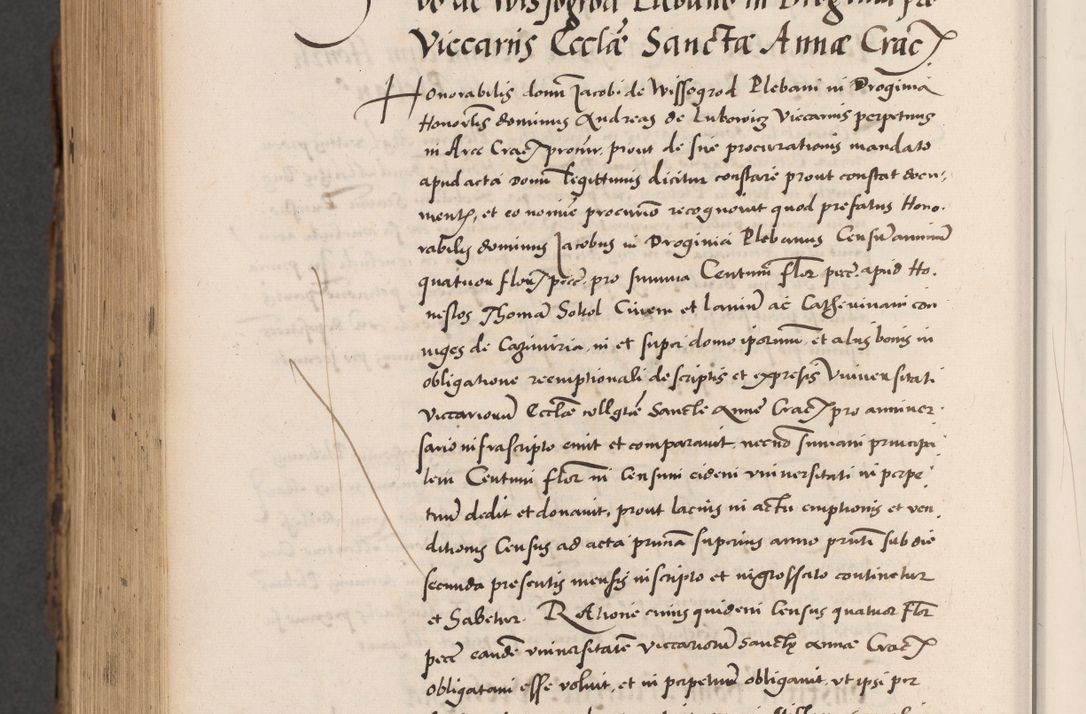 de Wissogrod Plebano in Droginia pro
Viccariis Eccłæ Sanctæ Annæ Crac
Honorabilis domı̃ Jacobi de Wissogrod Plebani in Droginia
Honorłis dominus Andreas de Lubowicz Viccarius perpetuus
in Arce Crac procur, prout de sue procurationis mandato
apud acta domı̃ legittimis dicitur constare prout constat docu-
mentis, et eo nomine procurio recognovit quod prefatus Hono-
rabilis dominus Jacobus in Droginia Plebanus Censu annuũ
quatuor florẽ pecẽ, pro summa Centum flor pecẽ apud Ho-
nestos Thomã Sokol Civem et laniũ ac Catherinam con
iuges de Cazimiria, in et super domo ipsorum, et aliis bonis in
obligatione reemptionali descriptis et expressis Universitati
Viccariorũ Eccłæ collgtẽ Sancte Anne Crac pro anniver-
sario infrascripto emit et comparavit, necnõ summam principa-
lem Centum florẽ in Censum eidem universitati in perpe-
tuũ dedit et donavit, prout lacius in actu emptionis et ven-
ditionis Census ad acta prima superius anno prñti sub die
secunda presentis mensis inscripto et ingrossato continetur
et habetur. Ratione cuius quidem Census quatuor Flor
pecẽ eandẽ universitatem viccariorũ Sanctæ Annæ Crac
obligatam esse voluit, et in perpetuũ obligavit, ut ipsi per